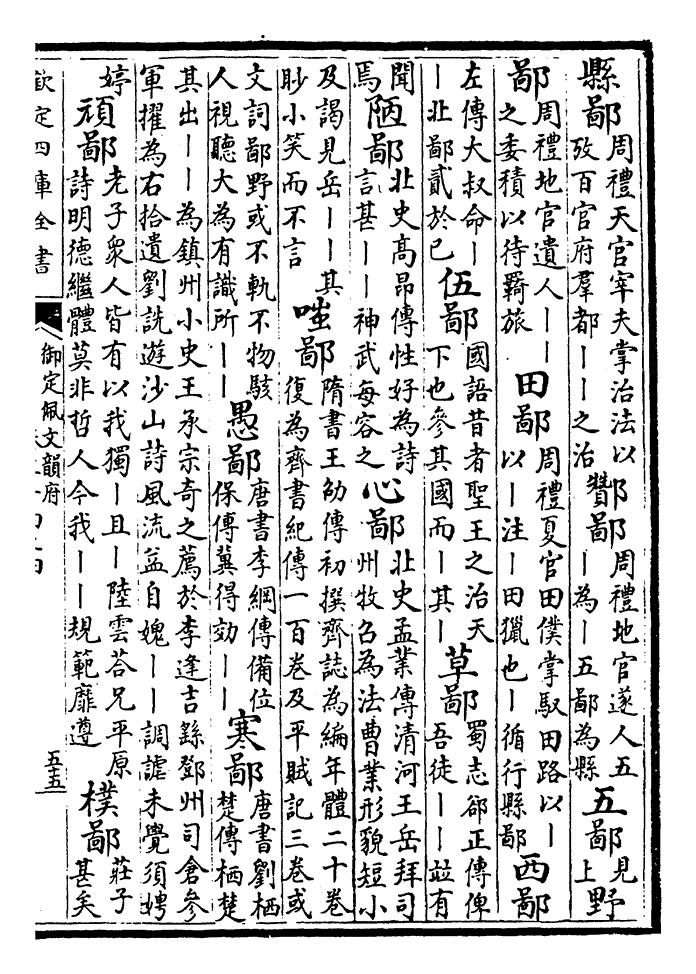 縣鄙周禮天官宰夫掌治法以攷百官府羣都丨丨之治酇鄙周禮地官遂人五丨為丨五鄙為縣五鄙見上野
鄙周禮地官遺人丨丨之委積以待羇旅田鄙周禮夏官田僕掌馭田路以丨以丨注丨田獵也丨循行縣鄙西鄙
左傳大叔命丨丨北鄙貳於已伍鄙國語昔者聖王之治天下也參其國而丨其丨草鄙蜀志郤正傳俾吾徒丨丨竝有
聞焉陋鄙北史高昂傳性好為詩言甚丨丨神武每容之心鄙北史孟業傳清河王岳拜司州牧召為法曹業形貌短小
及謁見岳丨丨其眇小笑而不言嗤鄙隋書王劭傳初撰齊誌為編年體二十卷復為齊書紀傳一百卷及平賊記三卷或
文詞鄙野或不軌不物駭人視聽大為有識所丨丨愚鄙唐書李綱傳備位保傅冀得効丨丨寒鄙唐書劉栖楚傳栖楚
其出丨丨為鎮州小史王承宗奇之薦於李逢吉繇鄧州司倉參軍擢為右拾遺劉詵遊沙山詩風流益自媿丨丨調謔未覺須娉
婷頑鄙老子衆人皆有以我獨丨且丨陸雲荅兄平原詩明德繼體莫非哲人今我丨丨規範靡遵樸鄙莊子甚矣
欽定四庫全書
御定佩文韻府
五五